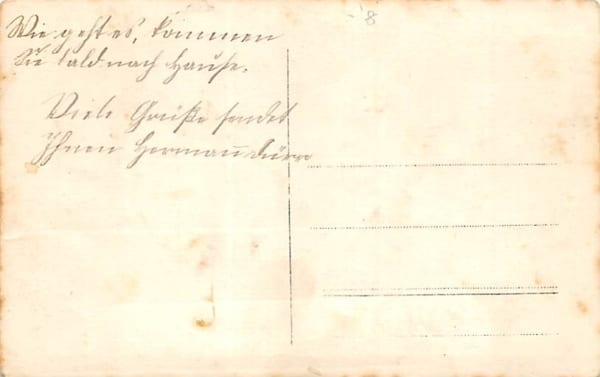 8
Wie geht es, kommen
Sie bald nach Hause.
Viele Grüße sendet
Ihnen Hermann